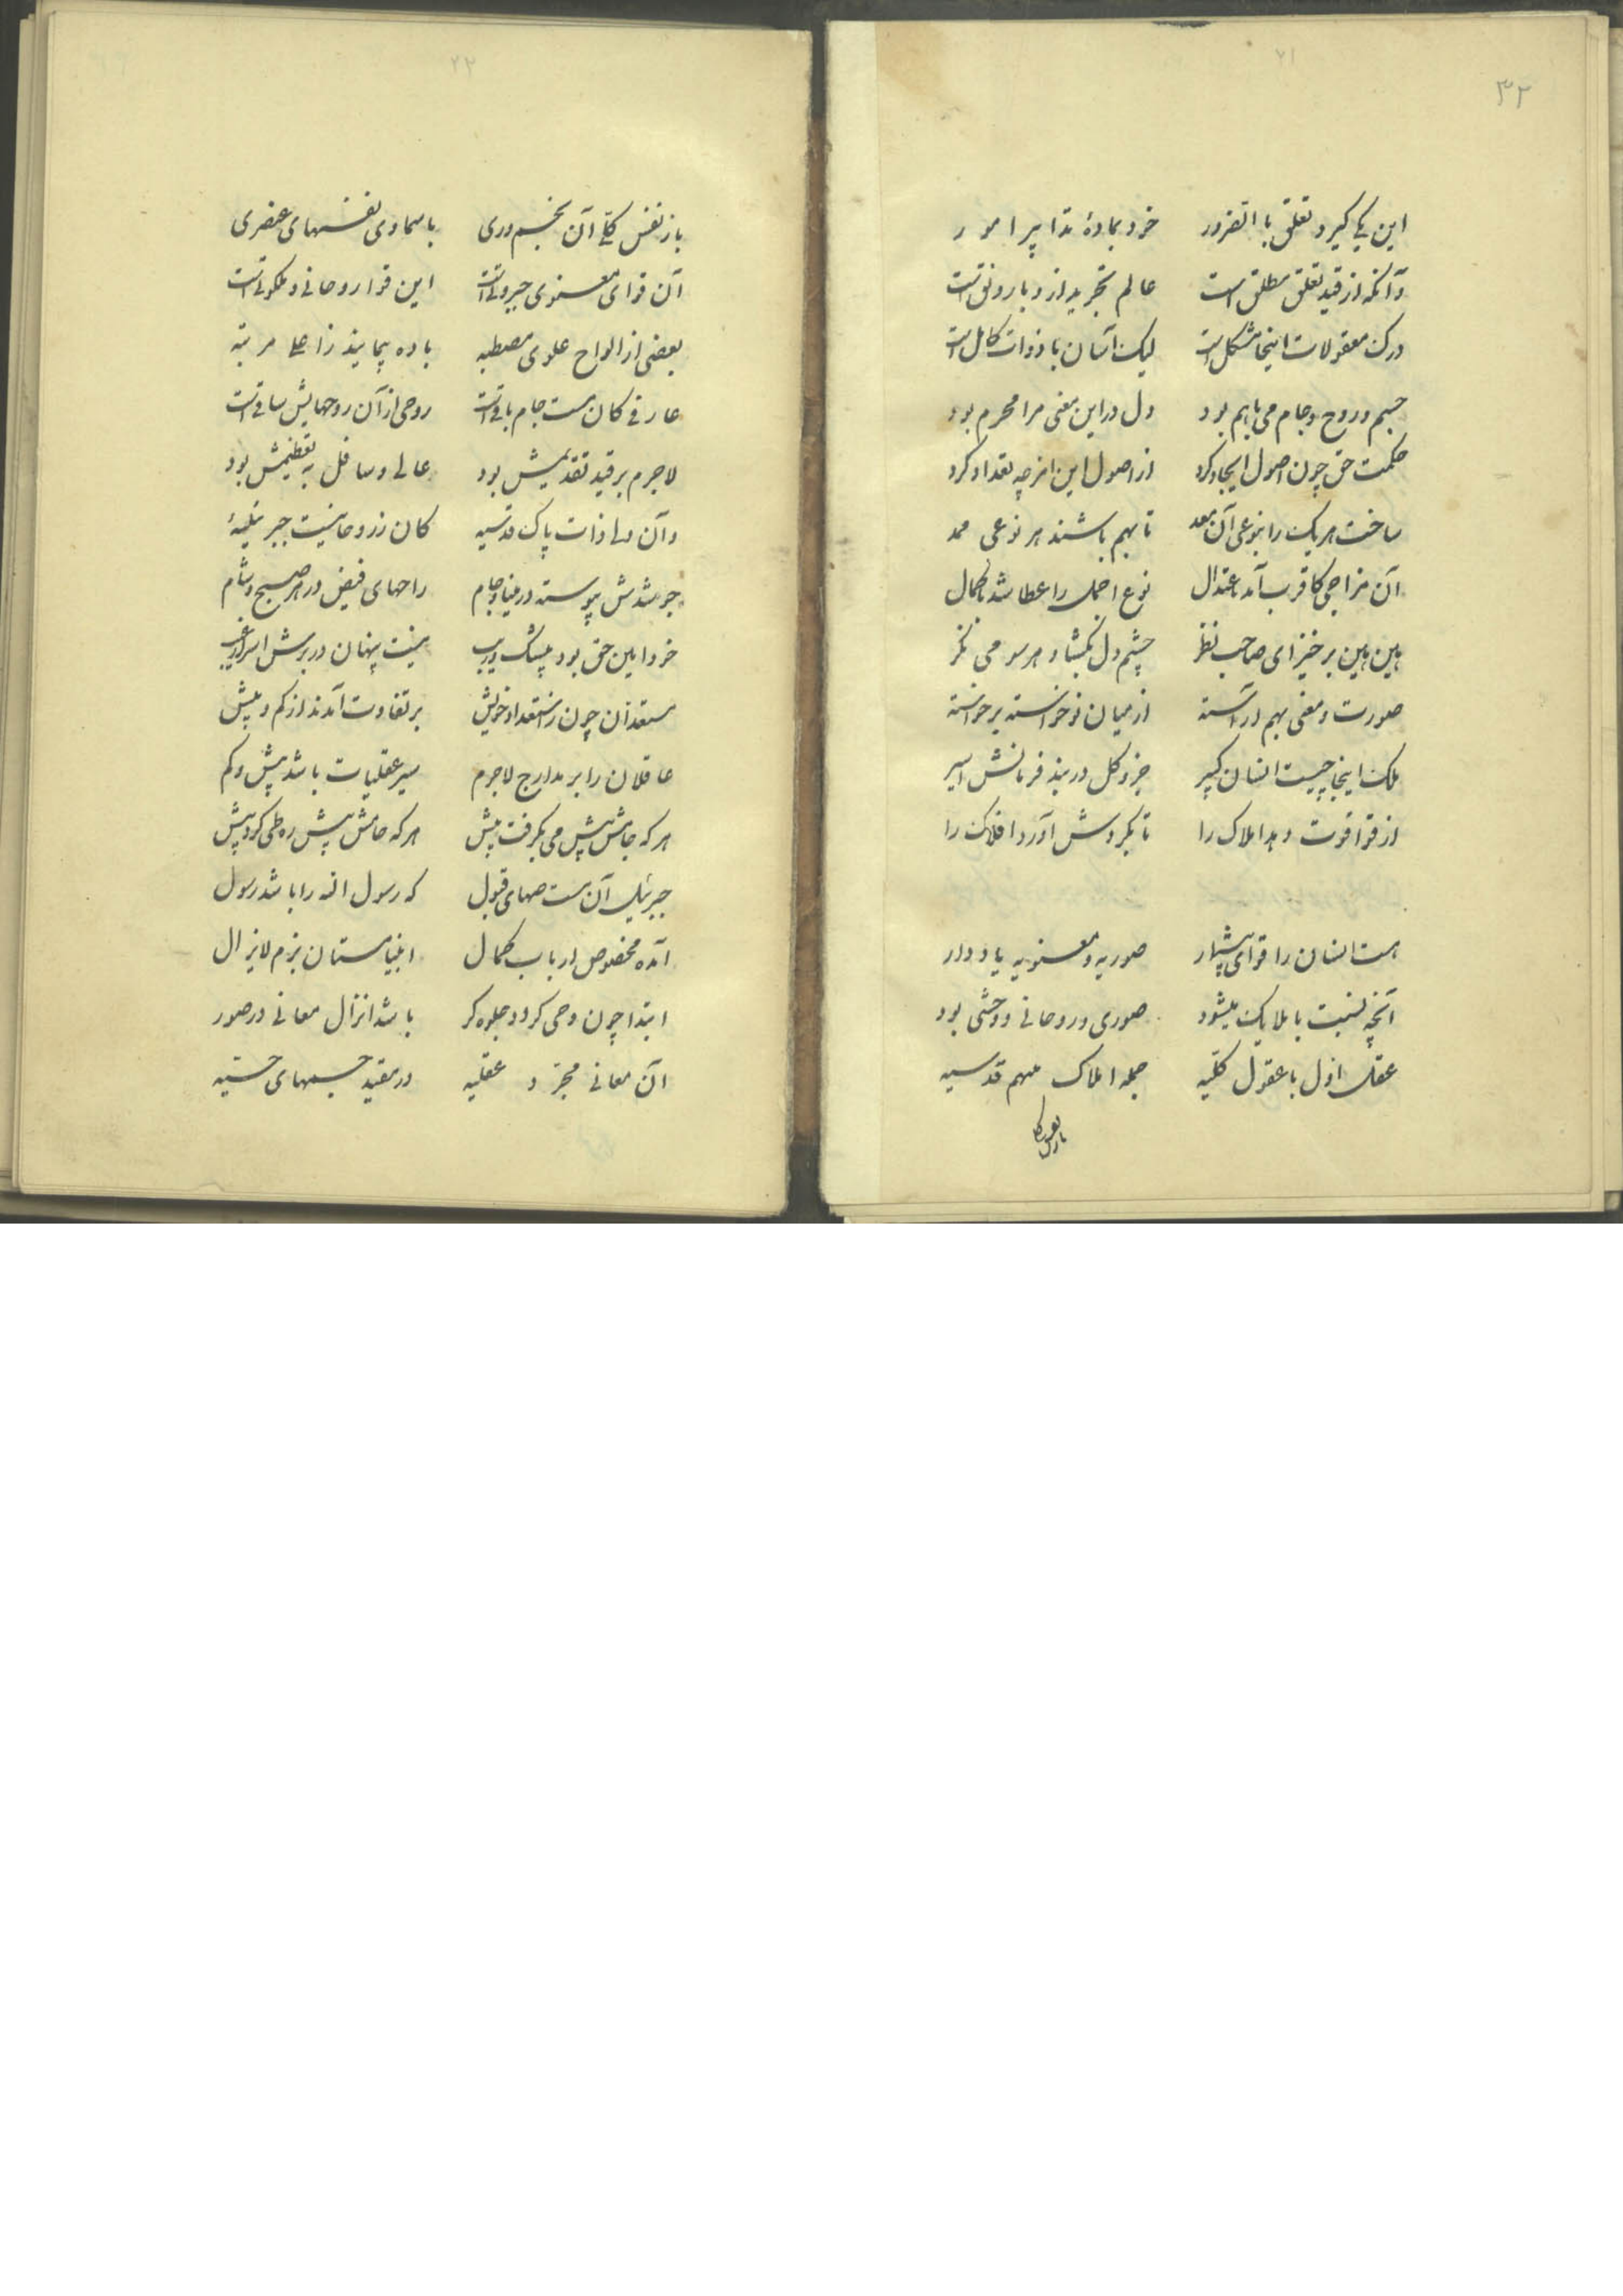 ۲۱
۳۲
این یکی گیرد تعلق با الضرور خرد بمادهٔ تدابیر امور
وآنکه از قید تعلق مطلق است عالم تجرید ازو با رونق است
درک معقولات اینجا مشکل است لیک آسان با ذوات کامل است
جسم و روح و جام می باهم بود دل در این معنی مرا محرم بود
حکمت حق چون اصول ایجاد کرد از اصول این امزجه تعداد کرد
ساخت هریک را بنوعی آن معد تا بهم باشند هر نوعی ممد
آن مزاجی کاقرب آمد باعتدال نوع اجمل را عطا شد باکمال
هین هین برخیز ای صاحب نظر چشم دل بگشا و هر سو می نگر
صورت و معنی بهم آراسته از میان نوخواسته برخواسته
ملک اینجا چیست انسان کبیر جزو کل در بند فرمانش اسیر
از قوا قوت دهد املاک را تا بگردش آورد افلاک را
هست انسان را قوای بیشمار صوریه و معنویه یاد دار
آنچه نسبت با ملایک میشود صوری و روحانی و وحشی بود
عقل اول با عقول کلیه جمله املاک مهیم قدسیه
باز نفس کل
۲۲
باز نفس کلی آن بخشم وری با سماوی نفسهای عنصری
آن قوای معنوی جبروتی است این قوا روحانی و ملکوتی است
بعضی از الواح علوی مصطبه باده پیمایند ز اعلا مرتبه
عارفی کان مست جام باقی است روحی از آن روحهایش ساقی است
لاجرم بر قید تقدیمش بود عالی و سافل به تعظیمش بود
وآن ولی ذات پاک قدسیه کان ز روحانیت جبرئیلیهٔ
جوشدش پیوسته در مینا و جام راحهای فیض در هر صبح و شام
خرد امین حق بود بیشک و ریب نیست پنهان در برش اسرار غیب
مستعدان چون ز استعداد خویش بر تفاوت آمدند از کم و بیش
عاقلان را بر مدارج لاجرم سیر عقلیات باشد بیش و کم
هرکه جامش بیش می بگرفت بیش هرکه حامش بیش ره طی کرد پیش
جبرئیل آن مست صهبای قبول که رسول الله را باشد رسول
آمده مخصوص ارباب کمال انبیا مستان بزم لایزال
ابتدا چون وحی گردد جلوه گر باشد انزال معانی در صور
آن معانی مجرد عقلیه در مقید جسمهای حسیه